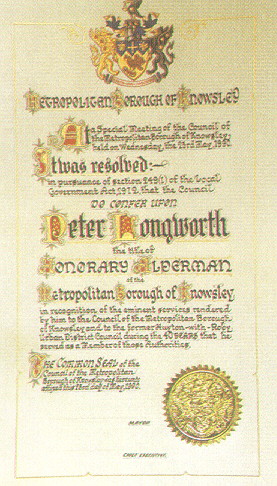 Metropolitan Borough of Knowsley
At a Special Meeting of the Council of
the Metropolitan Borough of Knowsley,
held on Wednesday, the 23rd May, 1990.
It was resolved:-
in pursuance of section 249(1) of the Local
Government Act, 1972, that the Council
DO CONFER UPON
Peter Longworth
the title of
HONORARY ALDERMAN
of the
Metropolitan Borough of Knowsley,
in recognition of the eminent services rendered
by him to the Council of the Metropolitan Borough
of Knowsley and to the former Huyton-with-Roby
Urban District Council during the 40 YEARS that he
served as a Member of those Authorities.
The Common Seal of the
Council of the Metropolitan
Borough of Knowsley was hereunto
affixed this 23rd day of May, 1990.
MAYOR
CHIEF EXECUTIVE